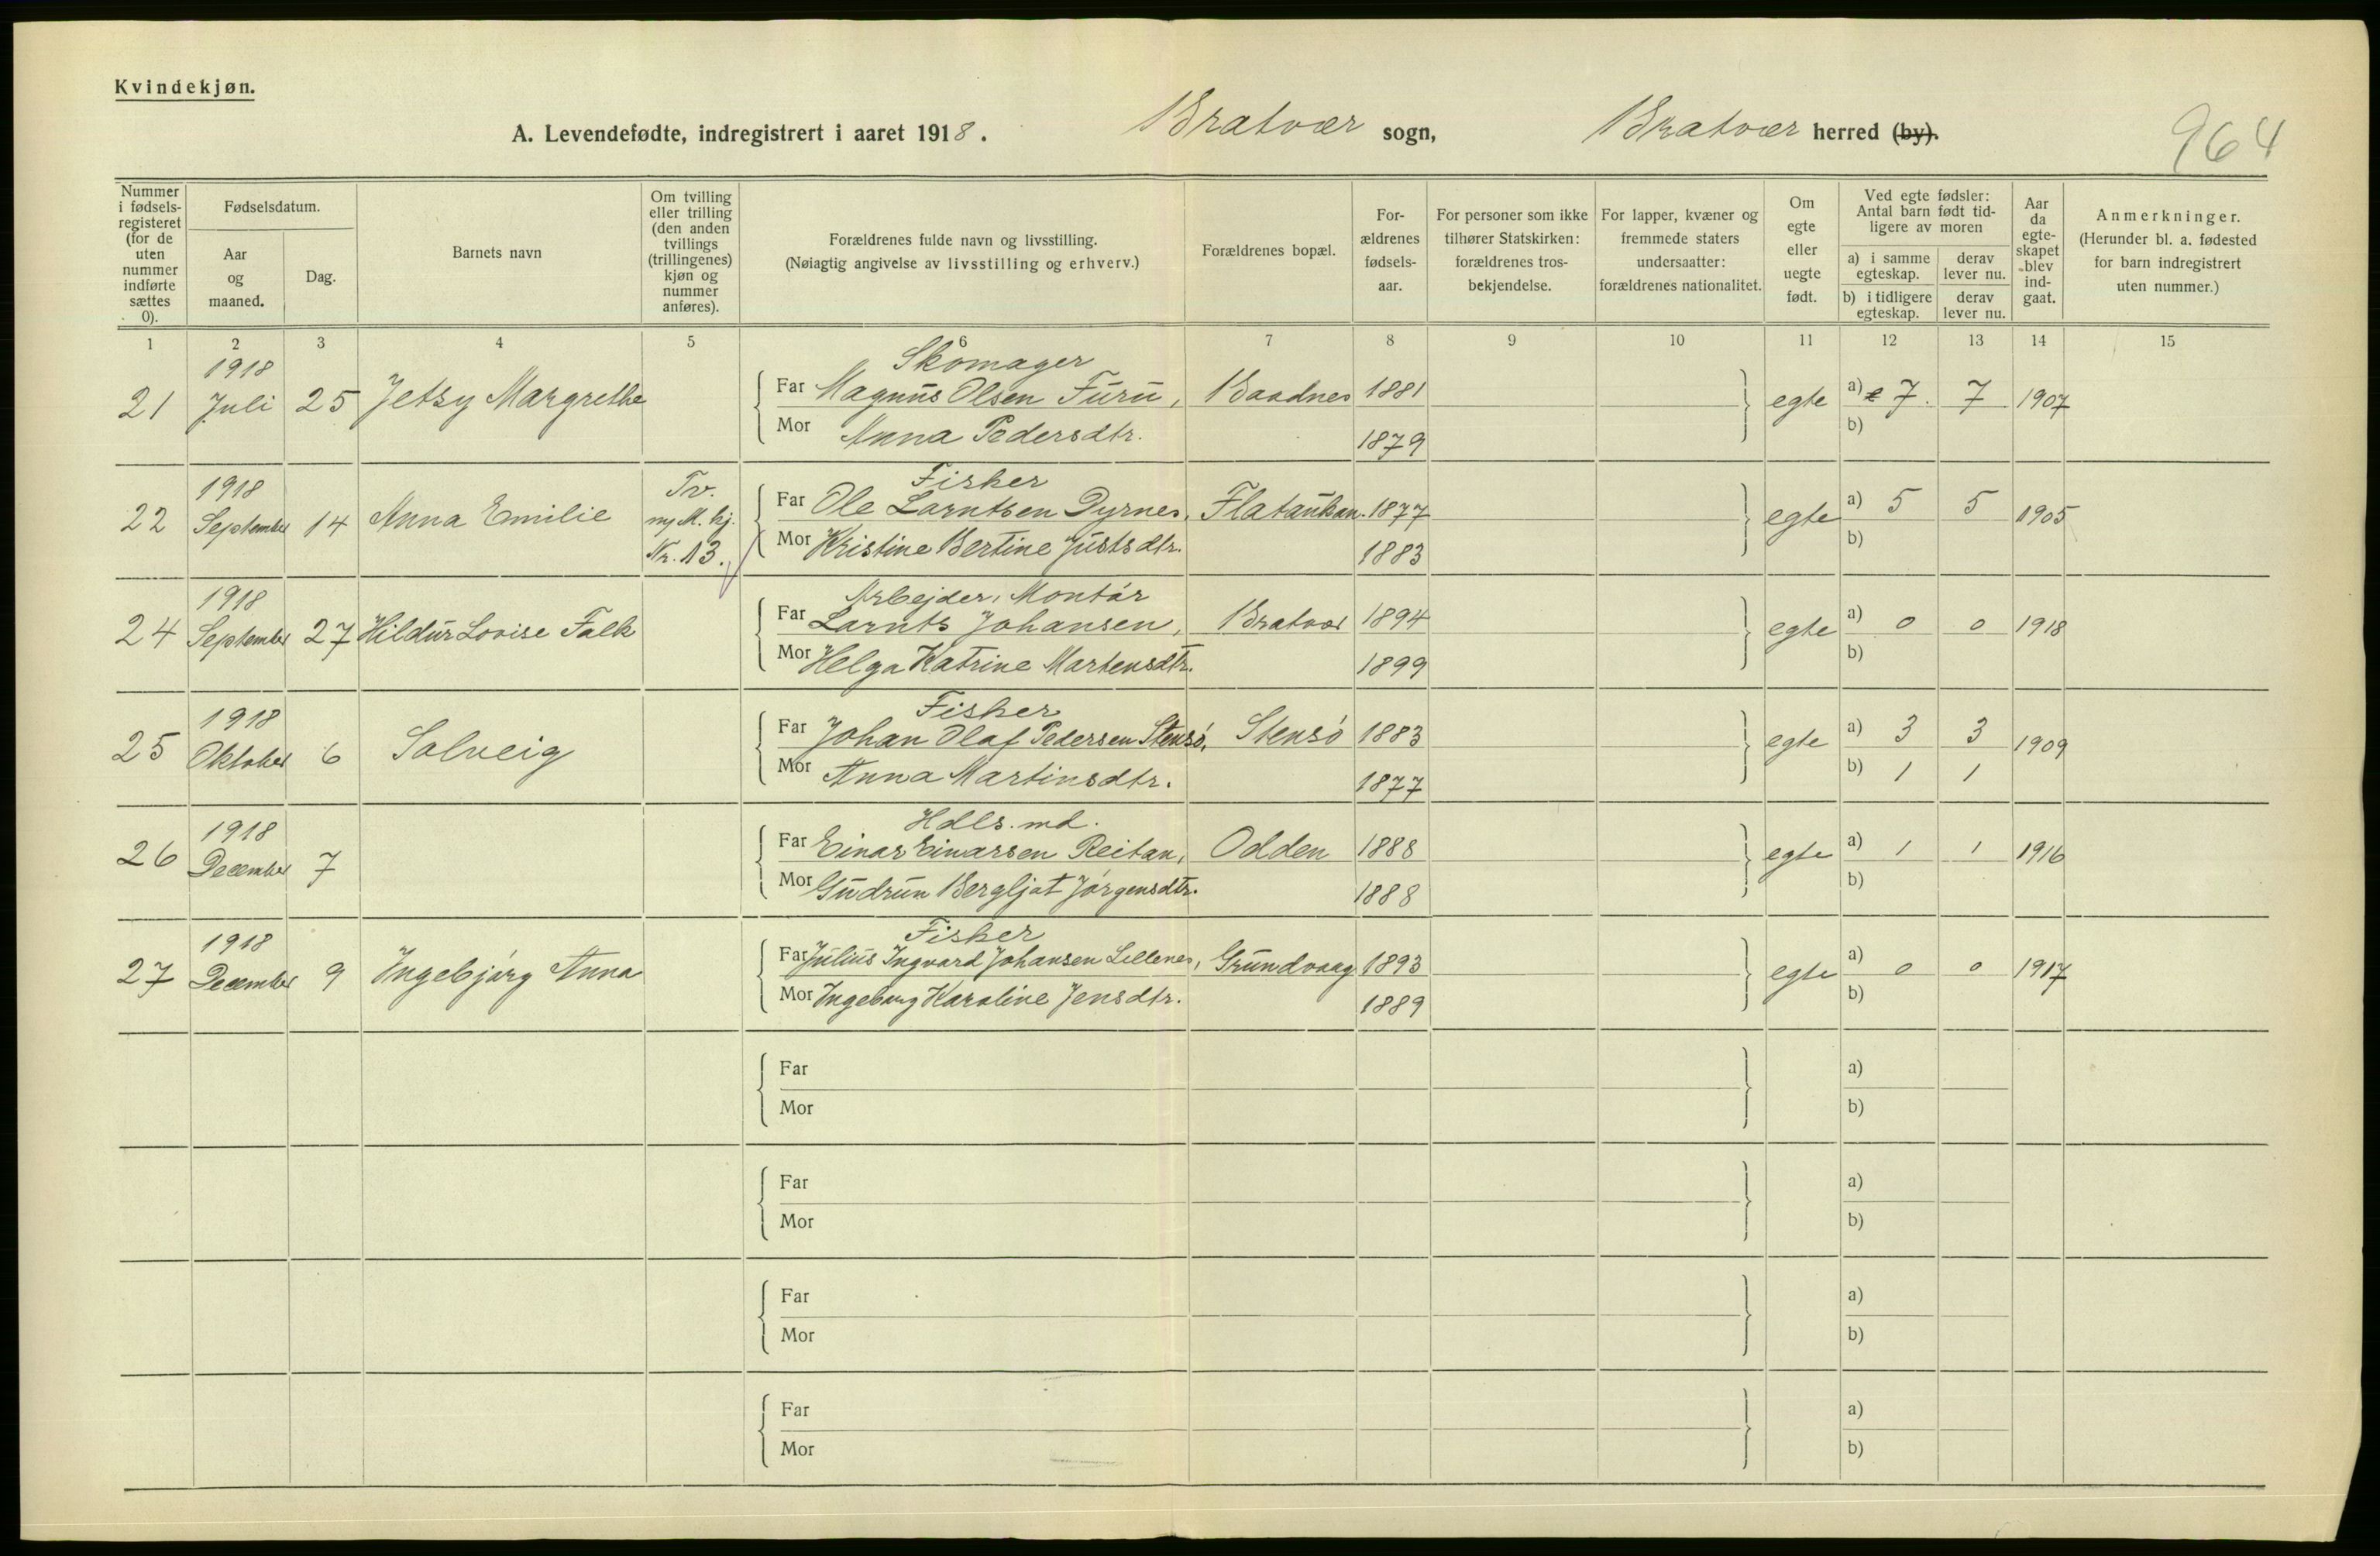 Kvindekjøn.
A. Levendefødte, indregistrert i aaret 1918. Bratvær sogn, Bratvær herred (by).
964
Nummer i fødselsregisteret (for de uten nummer indførte sættes 0).
Fødselsdatum.
Aar og maaned.
Dag.
Barnets navn
Om tvilling eller trilling (den anden tvillings (trillingenes) kjøn og nummer anføres).
Forældrenes fulde navn og livsstilling.
(Nøiagtig angivelse av livsstilling og erhverv.)
Forældrenes bopæl.
Forældrenes fødselsaar.
For personer som ikke tilhører Statskirken: forældrenes trosbekjendelse.
For lapper, kvæner og fremmede staters undersaatter: forældrenes nationalitet.
Om egte eller uegte født.
Ved egte fødsler: Antal barn født tidligere av moren
a) i samme egteskap.
derav lever nu.
b) i tidligere egteskap.
derav lever nu.
Aar da egteskapet blev indgaat.
Anmerkninger.
(Herunder bl. a. fødested for barn indregistrert uten nummer.)
1 2 3 4 5 6 7 8 9 10 11 12 13 14 15
1918 Skomager
21 Juli 25 Jetsy Margrethe Far Magnus Olsen Furu, Baadnes 1881 egte a) 7. 7 1907
Mor Anna Pedersdtr. 1879 b)
1918 Tv. Fisker
22 September 14 Anna Emilie m/M. kj. Far Ole Larntsen Dyrnes, 1877 egte a) 5 5 1905
Nr. 13. Mor Kristine Bertine Justsdtr. 1883 b)
1918 Arbejder, Montör
24 September 27 Hildur Lovise Falk Far Larnts Johansen, Bratvær 1894 egte a) 0 0 1918
Mor Helga Katrine Martensdtr. 1899 b)
1918 Fisker
25 Oktober 6 Solveig Far Johan Olaf Pedersen Stensö, Stensö 1883 egte a) 3 3 1909
Mor Anna Martinsdtr. 1877 b) 1 1
1918 Hdls. md.
26 December 7 Far Einar Einarsen Reitan, Odden 1888 egte a) 1 1 1916
Mor Gudrun Bergljot Jörgensdtr. 1888 b)
1918 Fisker
27 December 9 Ingebjörg Anna Far Julius Ingvard Johansen Lillenes, Grundvaag 1893 egte a) 0 0 1917
Mor Ingeborg Karoline Jensdtr. 1889 b)
Far a)
Mor b)
Far a)
Mor b)
Far a)
Mor b)
Far a)
Mor b)